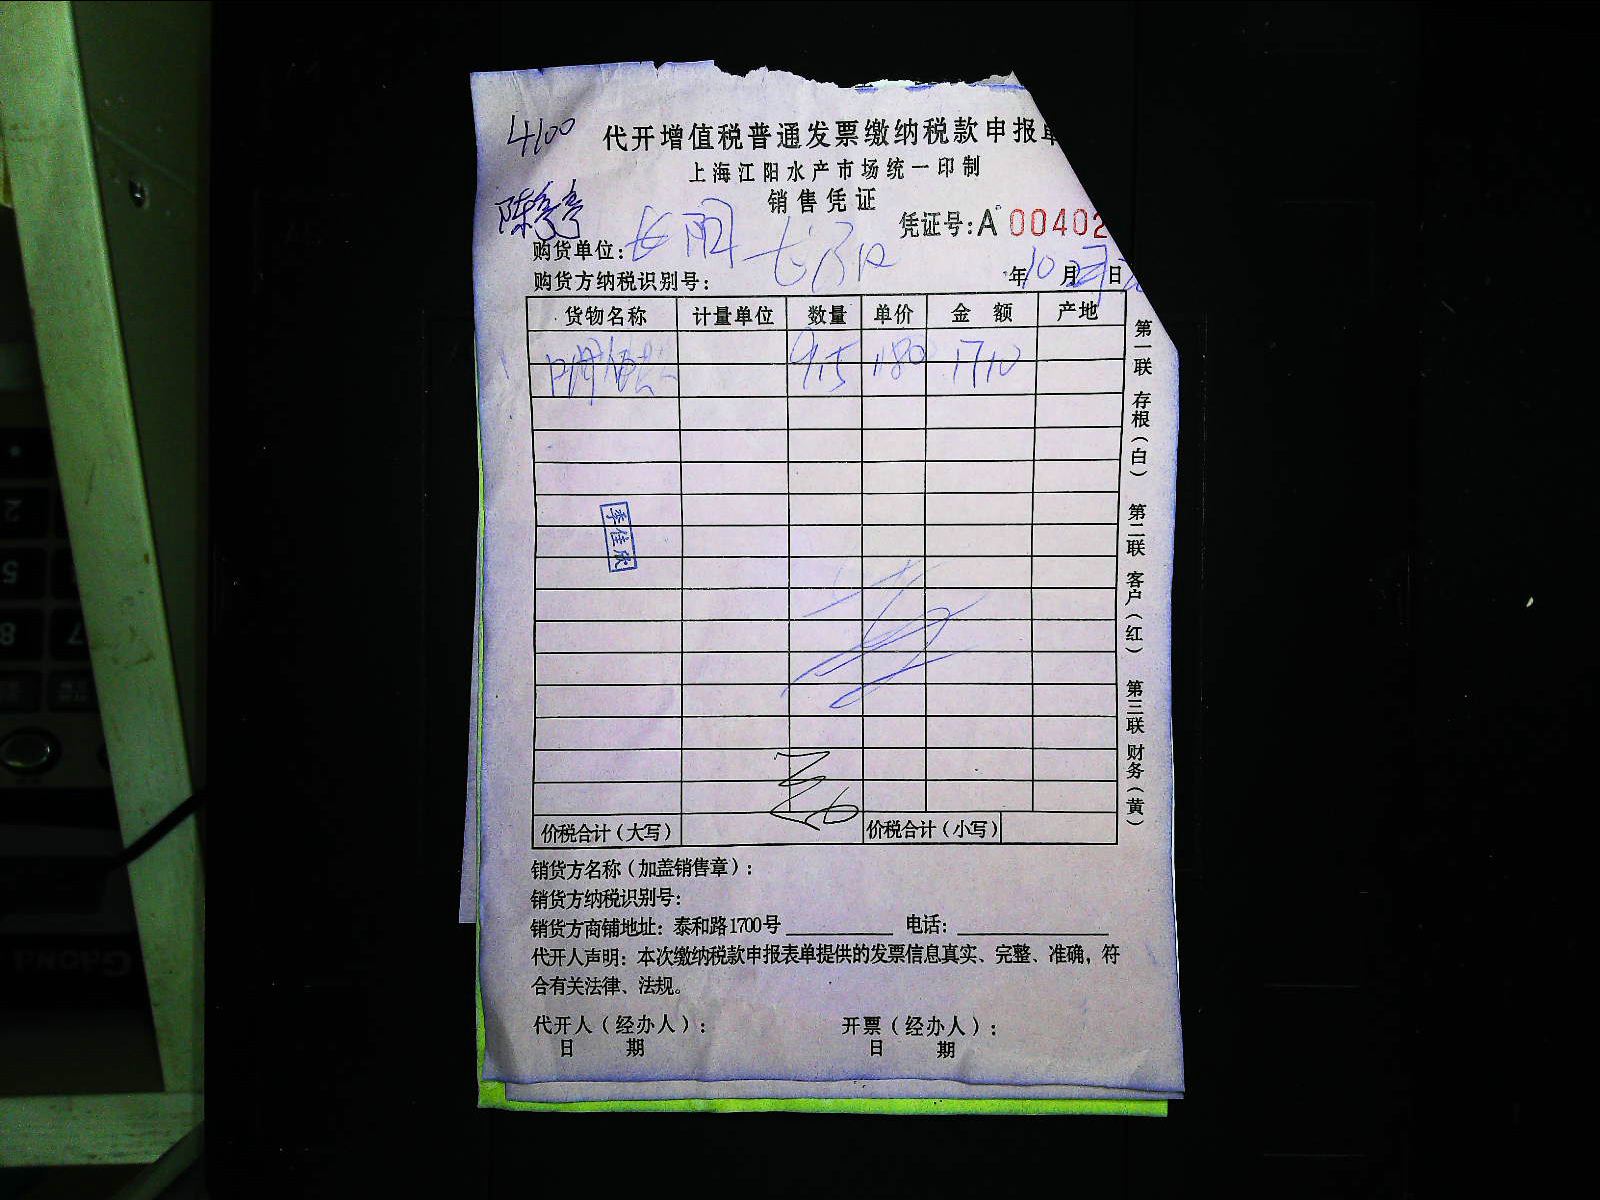 4100
代开增值税普通发票缴纳税款申报单
上海江阳水产市场统一印制
销售凭证
陈亭亭
凭证号:A 00402
购货单位: 长阳
购货方纳税识别号:
年10月 日
货物名称 计量单位 数量 单价 金 额 产地
9.5 180 1710
季佳欣
价税合计(大写) 价税合计(小写)
第一联 存根(白) 第二联 客户(红) 第三联 财务(黄)
销货方名称(加盖销售章):
销货方纳税识别号:
销货方商铺地址: 泰和路1700号 电话:
代开人声明: 本次缴纳税款申报表单提供的发票信息真实、完整、准确, 符
合有关法律、法规。
代开人(经办人): 开票(经办人):
日 期 日 期